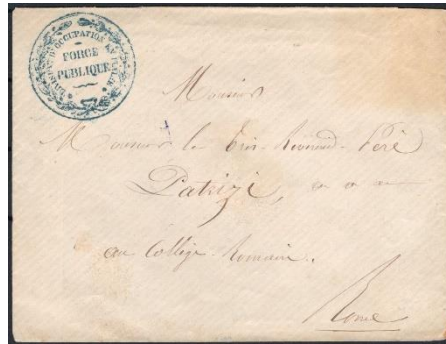 D'OCCUPATION EN ITALIE
FORCE
PUBLIQUE
Monsieur
Monsieur le très-Révérend-Père
Patrizi,
au Collège Romain.
Rome